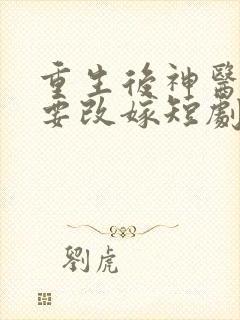 重生後神醫
要改嫁短劇
劉虎